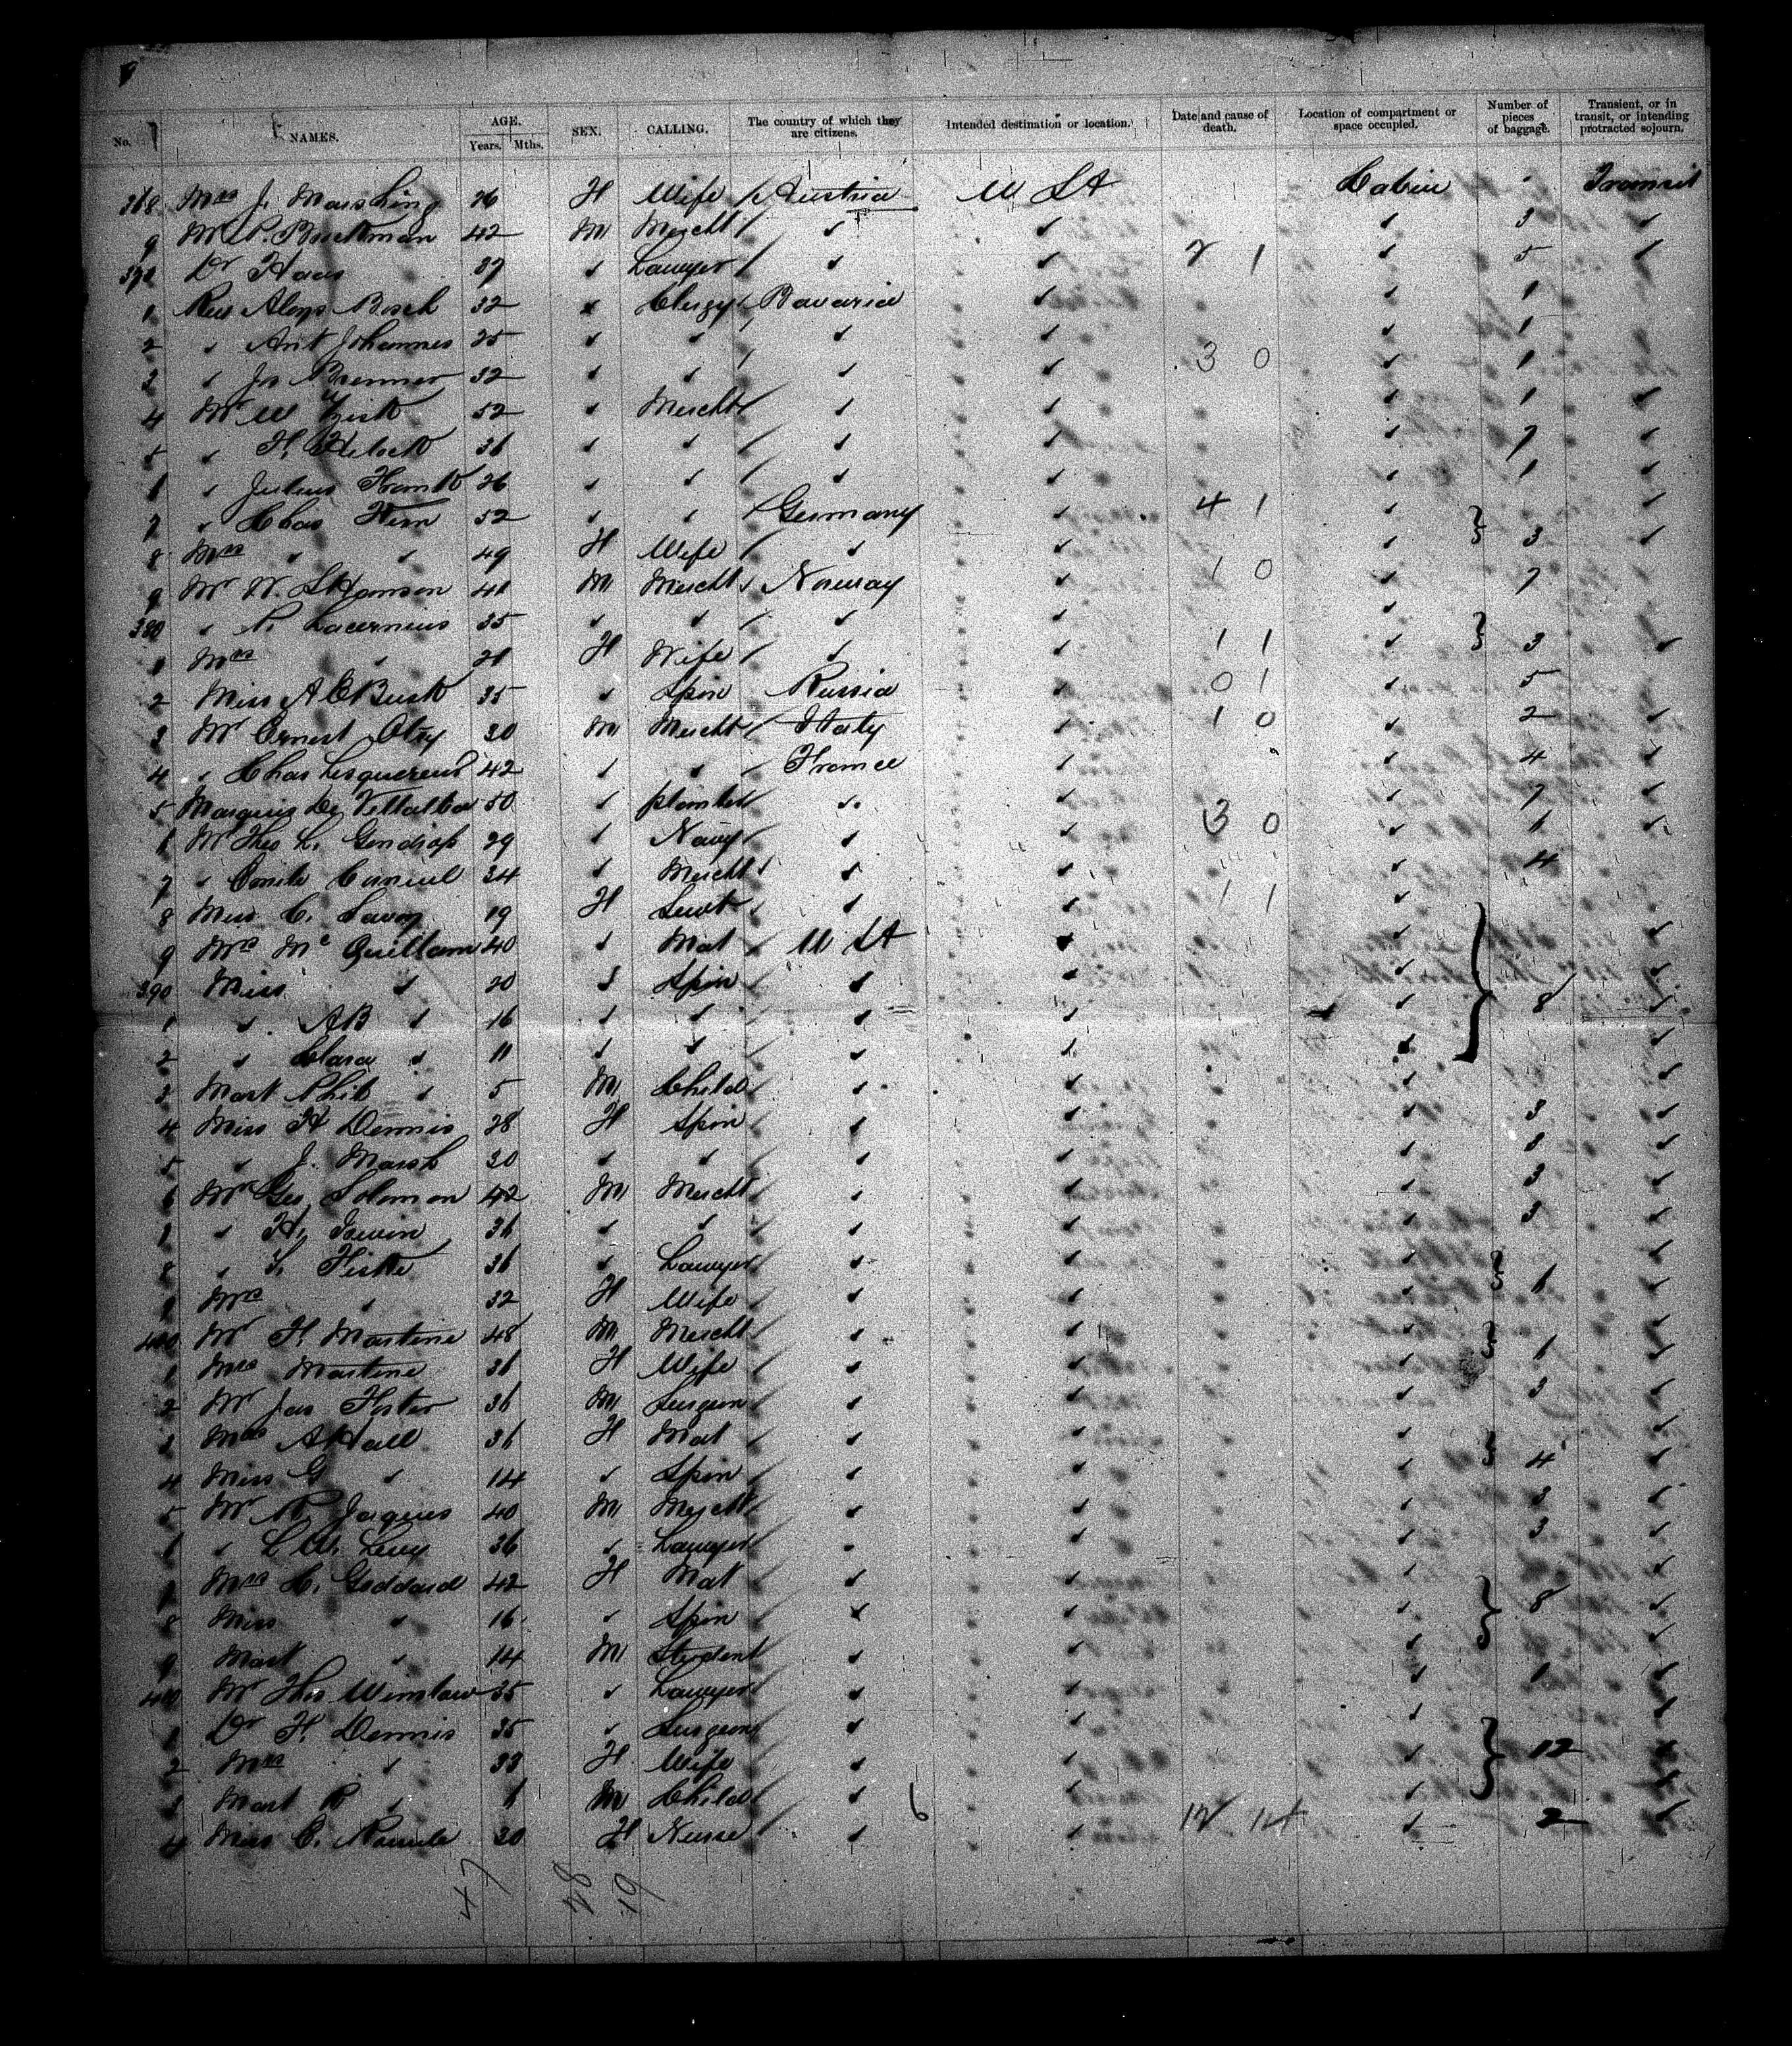 No. NAMES. AGE. Years. Mths. SEX. CALLING. The country of which they are citizens. Intended destination or location. Date and cause of death. Location of compartment or space occupied. Number of pieces of baggage. Transient, or in transit, or intending protracted sojourn.
368 Mrs J. Marshing 26 F Wife Austria U St Cabin Transit
9 Mr P. Bockman 42 M Mercht ✓ ✓ ✓ 3 ✓
Dr Haas 39 ✓ Lawyer ✓ ✓ 2 1 ✓ 5 ✓
1 Rev Aloys Bosch 32 ✓ Clergy Bavaria ✓ ✓ 1
2 ✓ Ant Johannes 25 ✓ ✓ ✓ ✓ ✓ 1
3 ✓ Jos Brenner 32 ✓ ✓ ✓ ✓ 3 0 ✓ 1 ✓
4 Mr W 52 ✓ Mercht ✓ ✓ ✓ 1 ✓
5 ✓ 36 ✓ ✓ ✓ ✓ ✓ 7 ✓
6 ✓ Julius 26 ✓ ✓ ✓ ✓ ✓ 1 ✓
7 ✓ Chas Kern 52 ✓ ✓ Germany ✓ 4 1 ✓ ✓
8 Mrs ✓ ✓ 49 F Wife ✓ ✓ ✓ 3 ✓
9 Mr W. 41 M Mercht Norway ✓ 1 0 ✓ 7
380 ✓ 35 ✓ ✓ ✓ ✓ ✓
1 Mrs ✓ 21 F Wife ✓ ✓ 1 1 ✓ 3 ✓
2 Miss A C Busk 35 ✓ Spin Russia ✓ 0 1 ✓ 5
3 Mr Ernest Otry 30 M Mercht Italy ✓ 1 0 ✓ 2 ✓
4 ✓ Chas Lesquereux 42 ✓ ✓ France ✓ ✓ 4 ✓
5 Marquis De Villalba 50 ✓ planter ✓ ✓ ✓ 7 ✓
6 Mr Theo L. 29 ✓ Navy ✓ ✓ 3 0 ✓ 1 ✓
7 ✓ Emile 34 ✓ Mercht ✓ ✓ ✓ 4
8 Miss C. Savoy 19 F Servt ✓ ✓ 1 1 ✓
9 Mrs Mc Quillam 40 ✓ Mat U St ✓ ✓ ✓
390 Miss ✓ 20 ✓ Spin ✓ ✓ ✓ ✓
1 ✓ AB ✓ 16 ✓ ✓ ✓ ✓ ✓ 8 ✓
2 ✓ Clara ✓ 11 ✓ ✓ ✓ ✓ ✓ ✓
3 Mast Phil ✓ 5 M Child ✓ ✓ ✓ ✓
4 Miss H Dennis 28 F Spin ✓ ✓ ✓ 3 ✓
5 ✓ J. Marsh 30 ✓ ✓ ✓ ✓ ✓ 3 ✓
6 Mr Geo Solomon 42 M Mercht ✓ ✓ ✓ 3 ✓
7 ✓ H. Irwin 36 ✓ ✓ ✓ ✓ ✓ 3 ✓
8 ✓ F. Fiske 36 ✓ Lawyer ✓ ✓ ✓ ✓
9 Mrs ✓ 32 F Wife ✓ ✓ ✓ 6 ✓
400 Mr F. Martine 48 M Mercht ✓ ✓ ✓ ✓
1 Mrs Martine 36 F Wife ✓ ✓ ✓ 1 ✓
2 Mr Jas Foster 36 M Surgeon ✓ ✓ ✓ 3 ✓
3 Mrs A Hall 36 F Mat ✓ ✓ ✓ ✓
4 Miss G ✓ 14 ✓ Spin ✓ ✓ ✓ 4 ✓
5 Mr R. Jaques 40 M Mercht ✓ ✓ ✓ 3 ✓
6 ✓ L W. Levy 36 ✓ Lawyer ✓ ✓ ✓ 3 ✓
7 Mrs C. Goddard 42 F Mat ✓ ✓ ✓ ✓
8 Miss ✓ 16 ✓ Spin ✓ ✓ ✓ 8 ✓
9 Mast ✓ 14 M Student ✓ ✓ ✓ ✓
410 Mr Thos Winslow 35 ✓ Lawyer ✓ ✓ ✓ 1 ✓
1 Dr F. Dennis 35 ✓ Surgeon ✓ ✓ ✓ ✓
2 Mrs ✓ 33 F Wife ✓ ✓ ✓ 12 ✓
3 Mast R ✓ 6 M Child ✓ 6 ✓ ✓ ✓
4 Miss C. 30 F Nurse ✓ ✓ ✓ 2 ✓
47 28 19